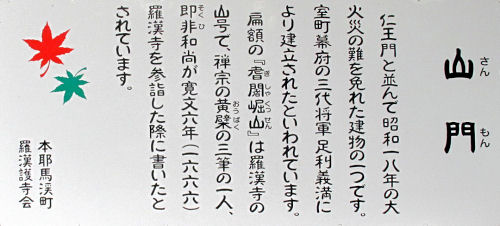 山門
さんもん
仁王門と並んで昭和一八年の大
火災の難を免れた建物の一つです。
室町幕府の三代将軍足利義満に
より建立されたといわれています。
扁額の『耆闍崛山』は羅漢寺の
ぎしゃくっせん
山号で、禅宗の黄檗の三筆の一人、
おうばく
即非和尚が寛文六年(一六六六)
そくひ
羅漢寺を参詣した際に書いたと
されています。
本耶馬渓町
羅漢寺護寺会